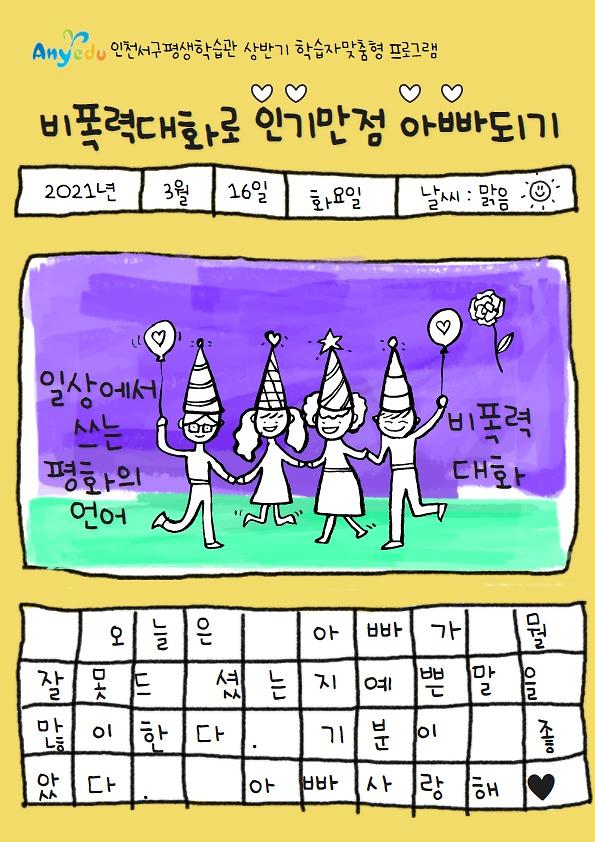 Anyedu 인천서구평생학습관 상반기 학습자맞춤형 프로그램
비폭력대화로 인기만점 아빠되기
2021년 3월 16일 화요일 날씨 : 맑음
일상에서
쓰는
평화의
언어
비폭력
대화
오늘은 아빠가 뭘
잘못드 셨는지예쁜말을
많이한다. 기분이 좋
았다. 아빠사랑해♥